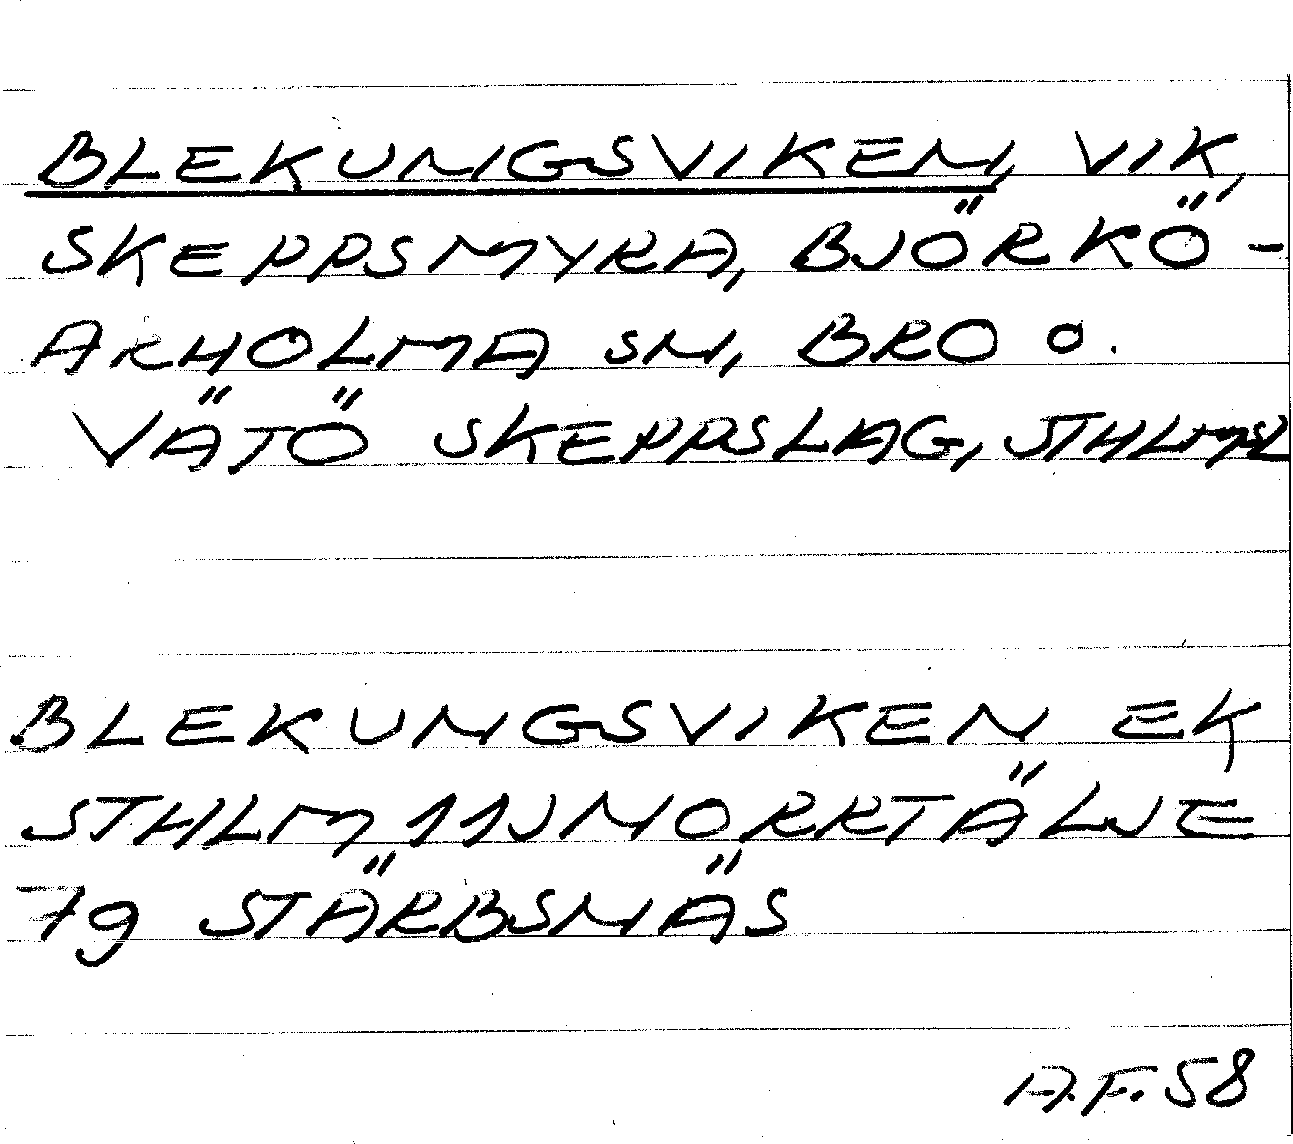 BLEKUNGSVIKEN, VIK,
SKEPPSMYRA, BJÖRKÖ-
ARHOLMA SN, BRO O.
VÄTÖ SKEPPSLAG, STHLMSL
BLEKUNGSVIKEN EK
STHLM 11J NORRTÄLJE
7g STÄRBSNÄS
A.F. 58